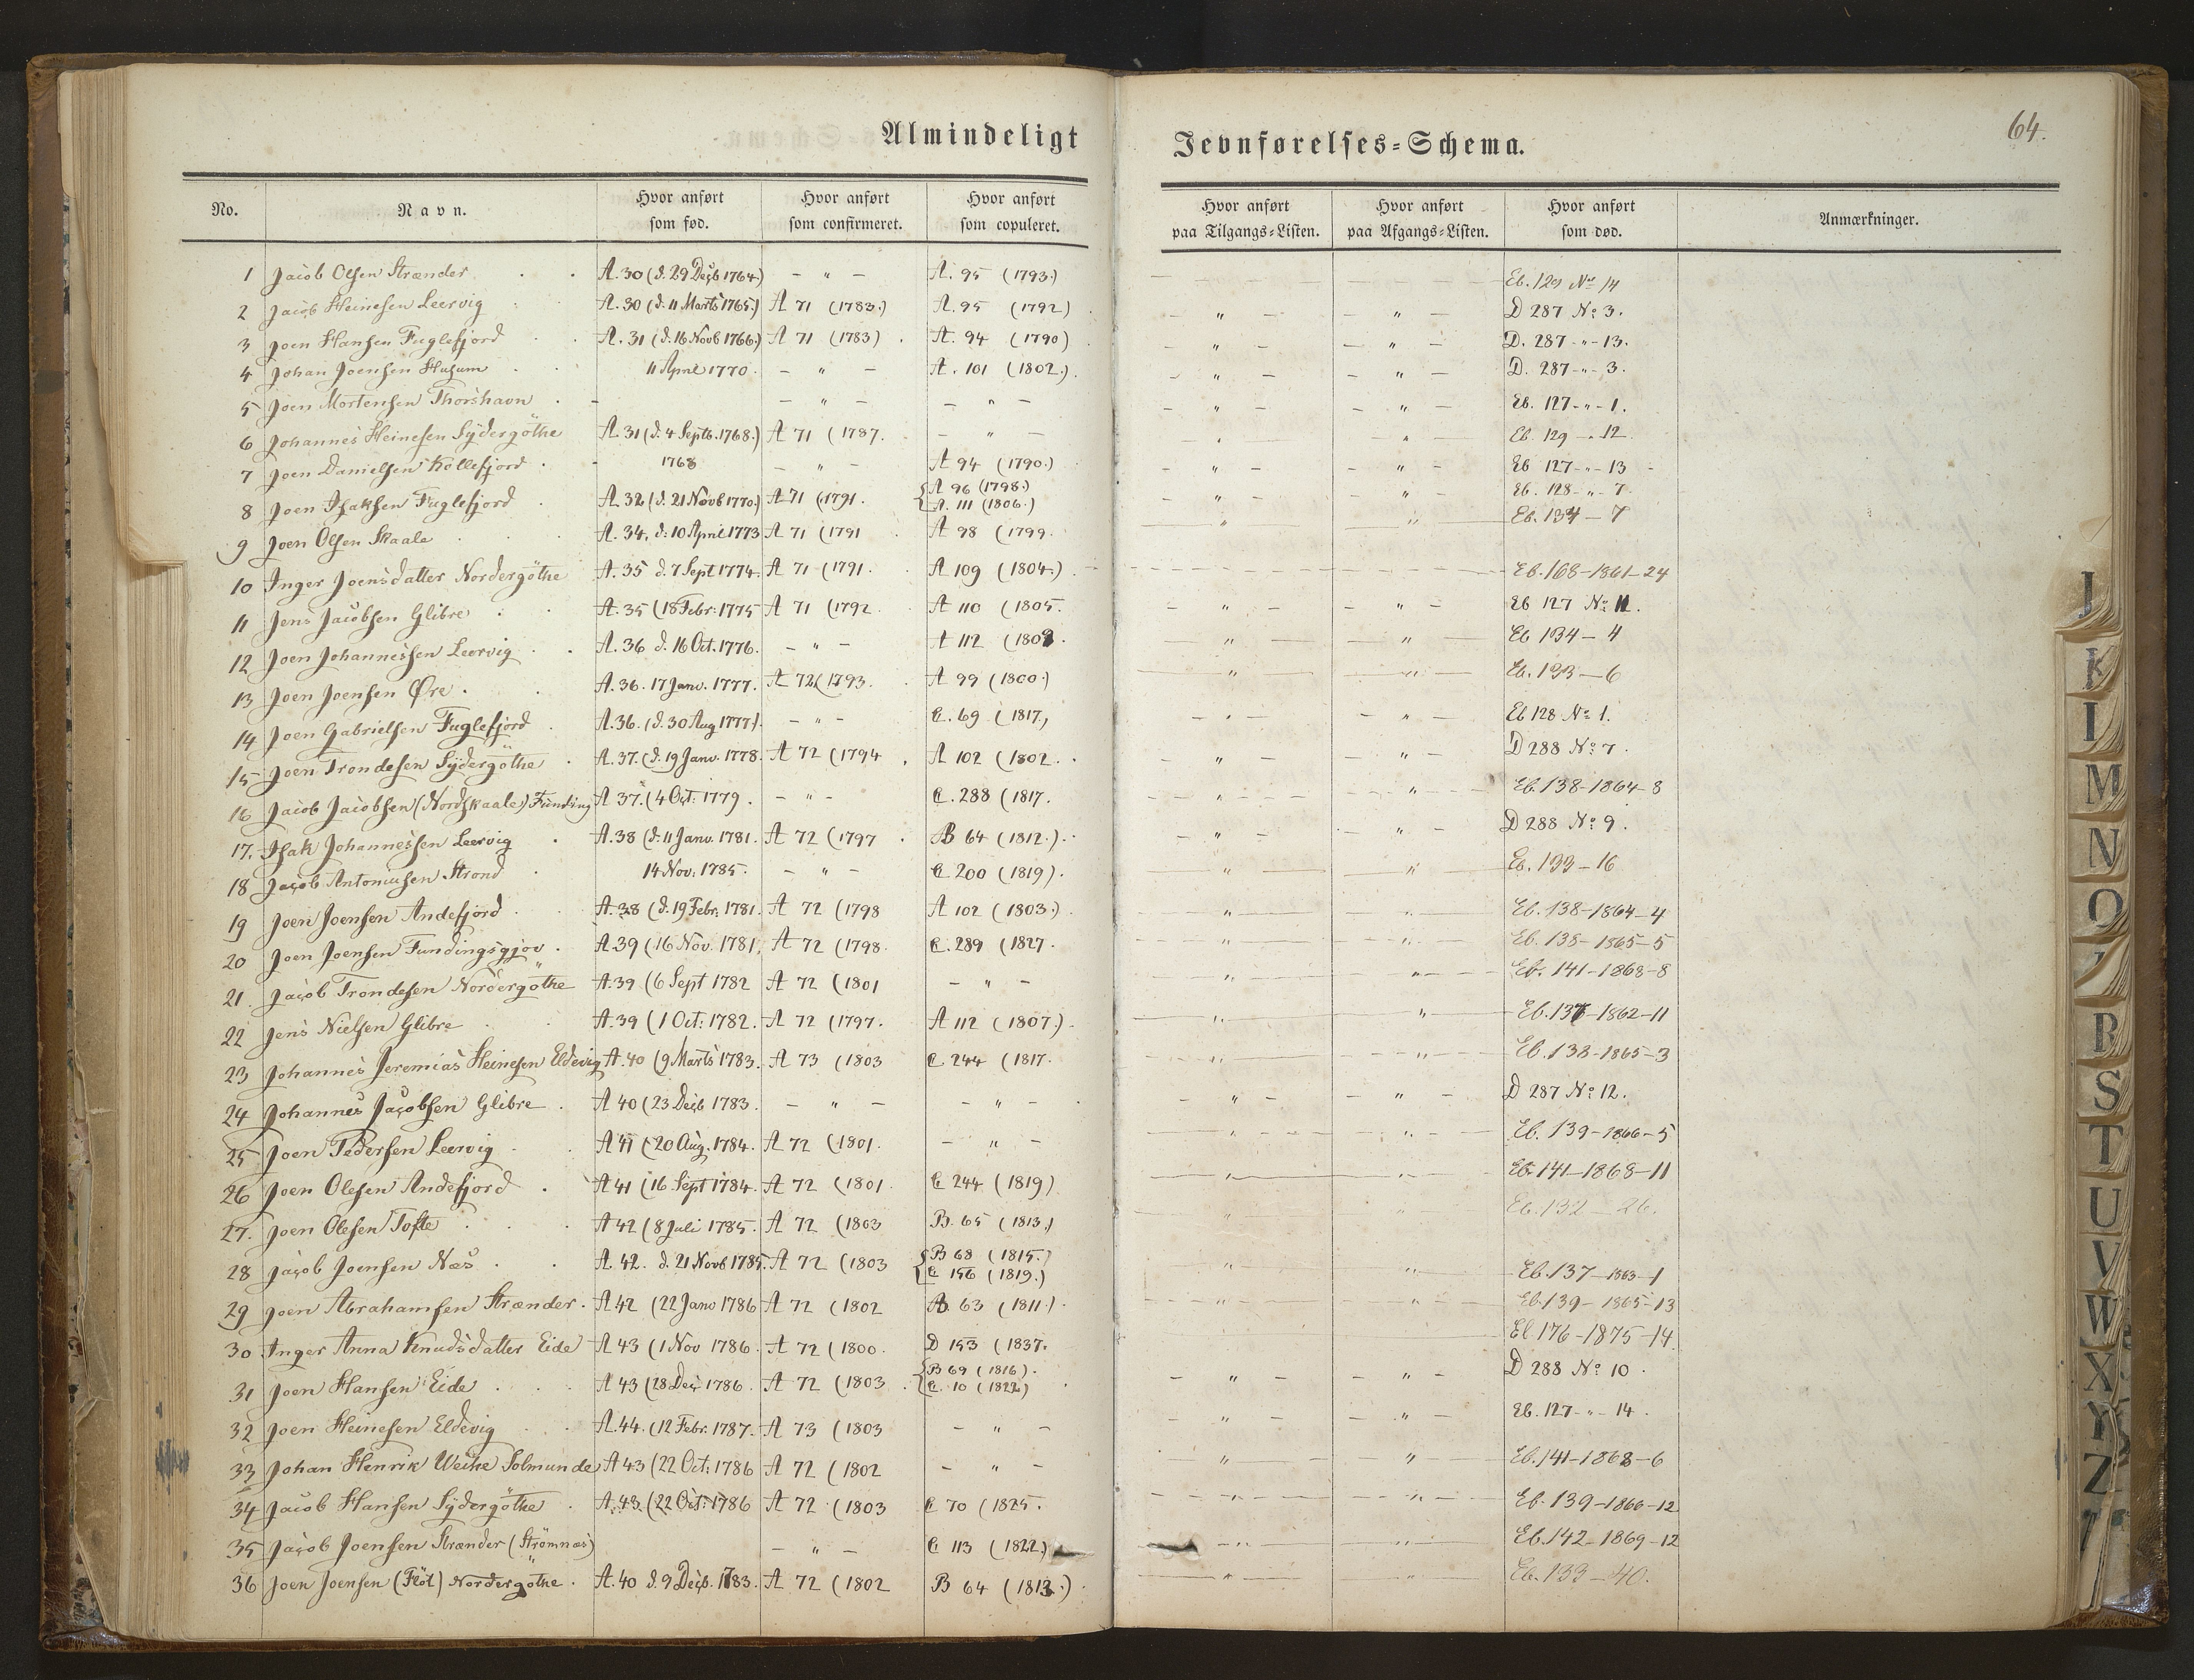 Almindeligt Jevnførelses=Schema.
64.
No. Navn. Hvor anført som fød. Hvor anført som confirmeret. Hvor anført som copuleret. Hvor anført paa Tilgangs=Listen. Hvor anført paa Afgangs=Listen. Hvor anført som død. Anmærkninger.
1 Jacob Olsen Strænder A. 30 (d. 29 Decb 1764) – " – A. 95 (1793.) Eb. 129 No 14
2 Jacob Heinesen Leervig A. 30 (d. 11 Marts 1765.) A 71 (1783.) A. 95 (1792) – " – – " – D 287 No 3.
3 Joen Hansen Fuglefjord A. 31 (d. 16 Novb 1766.) A 71 (1783) A. 94 (1790) – " – – " – D. 287 - " - 13.
4 Johan Joensen Husum 11 April 1770. – " – A. 101 (1802.) – " – – " – D. 287 - " - 3.
5 Joen Mortensen Thorshavn – – " – – " – – " – – " – Eb. 127 - " - 1.
6 Johannes Heinesen Sydergöthe A. 31 (d. 4 Septb. 1768.) A 71 (1787. – " – – " – – " – Eb. 129 - " 12.
7 Joen Danielsen Kollefjord - 1768 – " – A 94 (1790.) – " – – " – Eb 127 - " - 13
8 Joen Isaksen Fuglefjord A. 32 (d. 21 Novb 1770.) A 71 (1791. {A 96 (1798.) A. 111 (1806.) – " – – " – Eb. 128 - " - 7.
9 Joen Olsen Skaale A. 34. d. 10 April 1773 A 71 (1791 A 98 (1799. – " – – " – Eb. 134 – 7
10 Inger Joensdatter Nordergöthe A. 35 d. 7 Sept 1774. A 71 (1791. A 109 (1804.) Eb. 168-1861-24
11 Jens Jacobsen Glibre A. 35 (18 Febr: 1775 A 71 (1792 A 110 (1805. – " – – " – Eb 127 No 11.
12 Joen Johannessen Leervig A. 36 d. 16 Oct. 1776. – " – A 112 (1808. – " – – " – Eb 134 – 4
13 Joen Joensen Øre. A. 36. 17 Janv. 1777. A 72 (1793. A 99 (1800.) – " – – " – Eb. 133 – 6
14 Joen Gabrielsen Fuglefjord A. 36. (d. 30 Aug 1777). – " – C. 69 (1817.) – " – – " – Eb 128 No 1.
15 Joen Trondesen Sydergöthe A. 37. (d. 19 Janv. 1778. A 72 (1794 A 102 (1802. – " – – " – D 288 No 7.
16 Jacob Jacobsen (Nordskaale) Funding A 37. (4 Oct: 1779. – " – C. 288 (1817. – " – – " – Eb. 138-1864-8
17. Isak Johannessen Leervig A. 38 (d. 11 Janv. 1781. A 72 (1797 B 64 (1812.). – " – – " – D 288 No 9.
18 Jacob Antoniusen Strond 14 Nov: 1785. – " – C 200 (1819). – " – – " – Eb. 133 – 16
19 Joen Joensen Andefjord A. 38 (d. 19 Febr. 1781. A 72 (1798 A 102 (1803.) – " – – " – Eb. 138-1864-4
20 Joen Joensen Fundingsgjov. A. 39 (16 Nov. 1781. A 72 (1798. C. 289 (1827. – " – – " – Eb. 138-1865-5
21. Jacob Trondesen Nordergöthe A. 39 (6 Sept 1782 A 72 (1801 – " – – " – – " – Eb. 141-1868-8
22 Jens Nielsen Glibre A. 39 (1 Oct: 1782. A 72 (1797. A 112 (1807.). – " – – " – Eb. 137-1862-11
23 Johannes Jeremias Heinesen Eldevig A. 40 (9 Marts 1783. A 73 (1803 C 244 (1817. – " – – " – Eb. 138-1865-3
24 Johannes Jacobsen Glibre A 40 (23 Decb 1783. – " – – " – – " – – " – D 287 No 12.
25 Joen Pedersen Leervig A 41 (20 Aug. 1784. A 72 (1801. – " – – " – – " – Eb. 139-1866-5
26 Joen Olesen Andefjord A 41 (16 Sept 1784. A 72 (1801. C 244 (1819) – " – – " – Eb. 141-1868-11
27. Joen Olesen Tofte A 42 (8 Juli 1785. A 72 (1803 B. 65 (1813.) – " – – " – Eb. 132 – 26.
28 Jacob Joensen Næs A. 42. d. 21 Novb 1785. A 72 (1803 {B 68 (1815.) C 156 (1819.) – " – – " – Eb. 137-1863-1
29 Joen Abrahamsen Strænder. A 42 (22 Janv 1786 A 72 (1802 B 63 (1811.). – " – – " – Eb. 139-1865-13
30 Inger Anna Knudsdatter Eide A 43 (1 Nov 1786. A 72 (1800. D 153 (1837. El 176-1875-14.
31 Joen Hansen Eide A 43 (28 Dec 1786. A 72 (1803. {B 69 (1816). C. 10 (1822) – " – – " – D 288 No 10.
32 Joen Heinesen Eldevig A. 44. (12 Febr. 1787. A 73 (1803 – " – – " – – " – Eb. 127 - " - 14.
33 Johan Henrik Weihe Solmunde A 43 (22 Oct: 1786 A 72 (1802 – " – – " – – " – Eb. 141-1868-6
34 Jacob Hansen Sydergöthe A. 43. (22 Oct: 1786 A 72 (1803 C 70 (1825. – " – – " – Eb. 139-1866-12
35 Jacob Joensen Strænder (Strömnæs) – " – C 113 (1822.) – " – – " – Eb. 142-1869-12
36 Joen Joensen (Flöt) Nordergöthe. A. 40 d. 9 Decb. 1783. A 72 (1802 B 64 (1813.) – " – – " – Eb. 133 – 40.
J
K
I
M
N
O
R
S
T
U
V
W
X
Y
Z